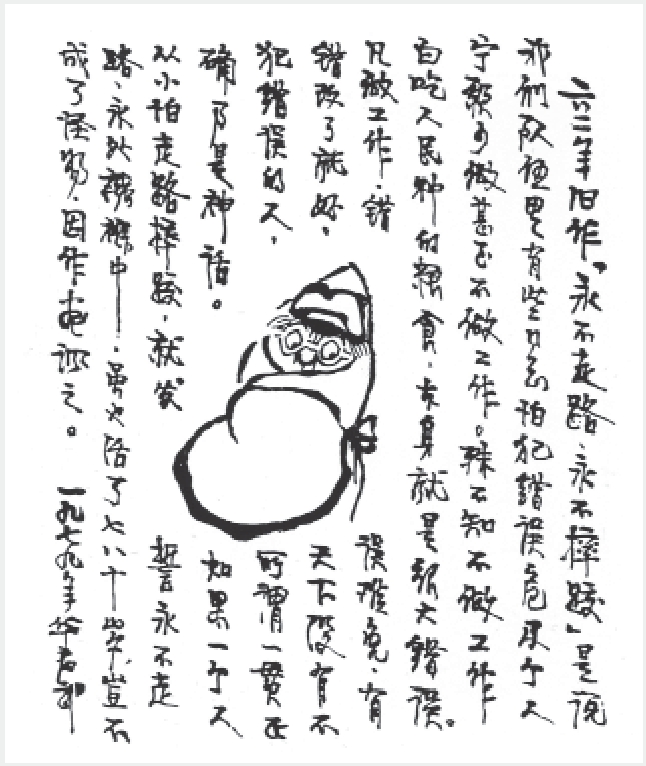 六二年旧作「永不走路、永不摔跤」是说
我们队伍里有些同志怕犯错误危及个人
宁愿少做甚至不做工作。殊不知不做工作
白吃人民种的粮食、本身就是大错误。
凡做工作、错误难免、有
错改了就好、天下没有不
犯错误的人,所谓一贯正
确乃是神话。如果一个人
从小怕走路摔跤、就发誓永不走
路、永趴襁褓中、活了七八十岁,岂不
成了怪物、因作画讽之。一九七九年华君武